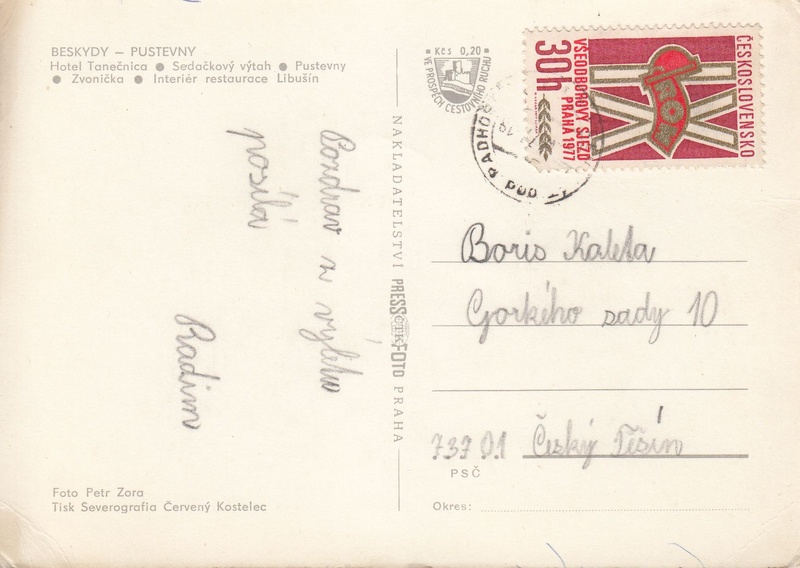 BESKYDY – PUSTEVNY
Hotel Tanečnica ● Sedačkový výtah ● Pustevny
● Zvonička ● Interiér restaurace Libušín
Pozdrav z výletu
posílá
Radim
Foto Petr Zora
Tisk Severografia Červený Kostelec
NAKLADATELSTVÍ PRESSFOTO PRAHA
ČTK
Kčs 0,20
VE PROSPĚCH CESTOVNÍHO RUCHU
pod RADHO
ČESKOSLOVENSKO
ROH
VŠEODBOROVÝ SJEZD
PRAHA 1977
30h
Boris Kaleta
Gorkého sady 10
737 01 Český Těšín
PSČ
Okres: